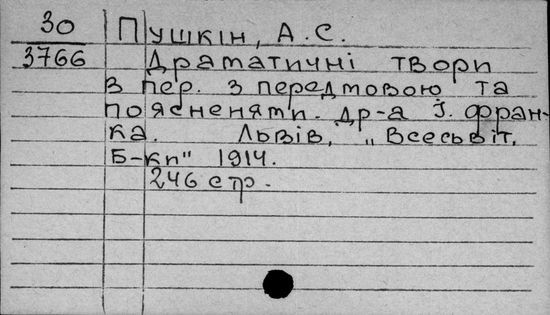 30 Пушкін, А. С.
3766 Драматичні твори
з пер. з передмовою та
поясненяти. др-а І. Фран-
ка. Львів, „Всесьвіт.
Б-ки" 1914.
246 стр.